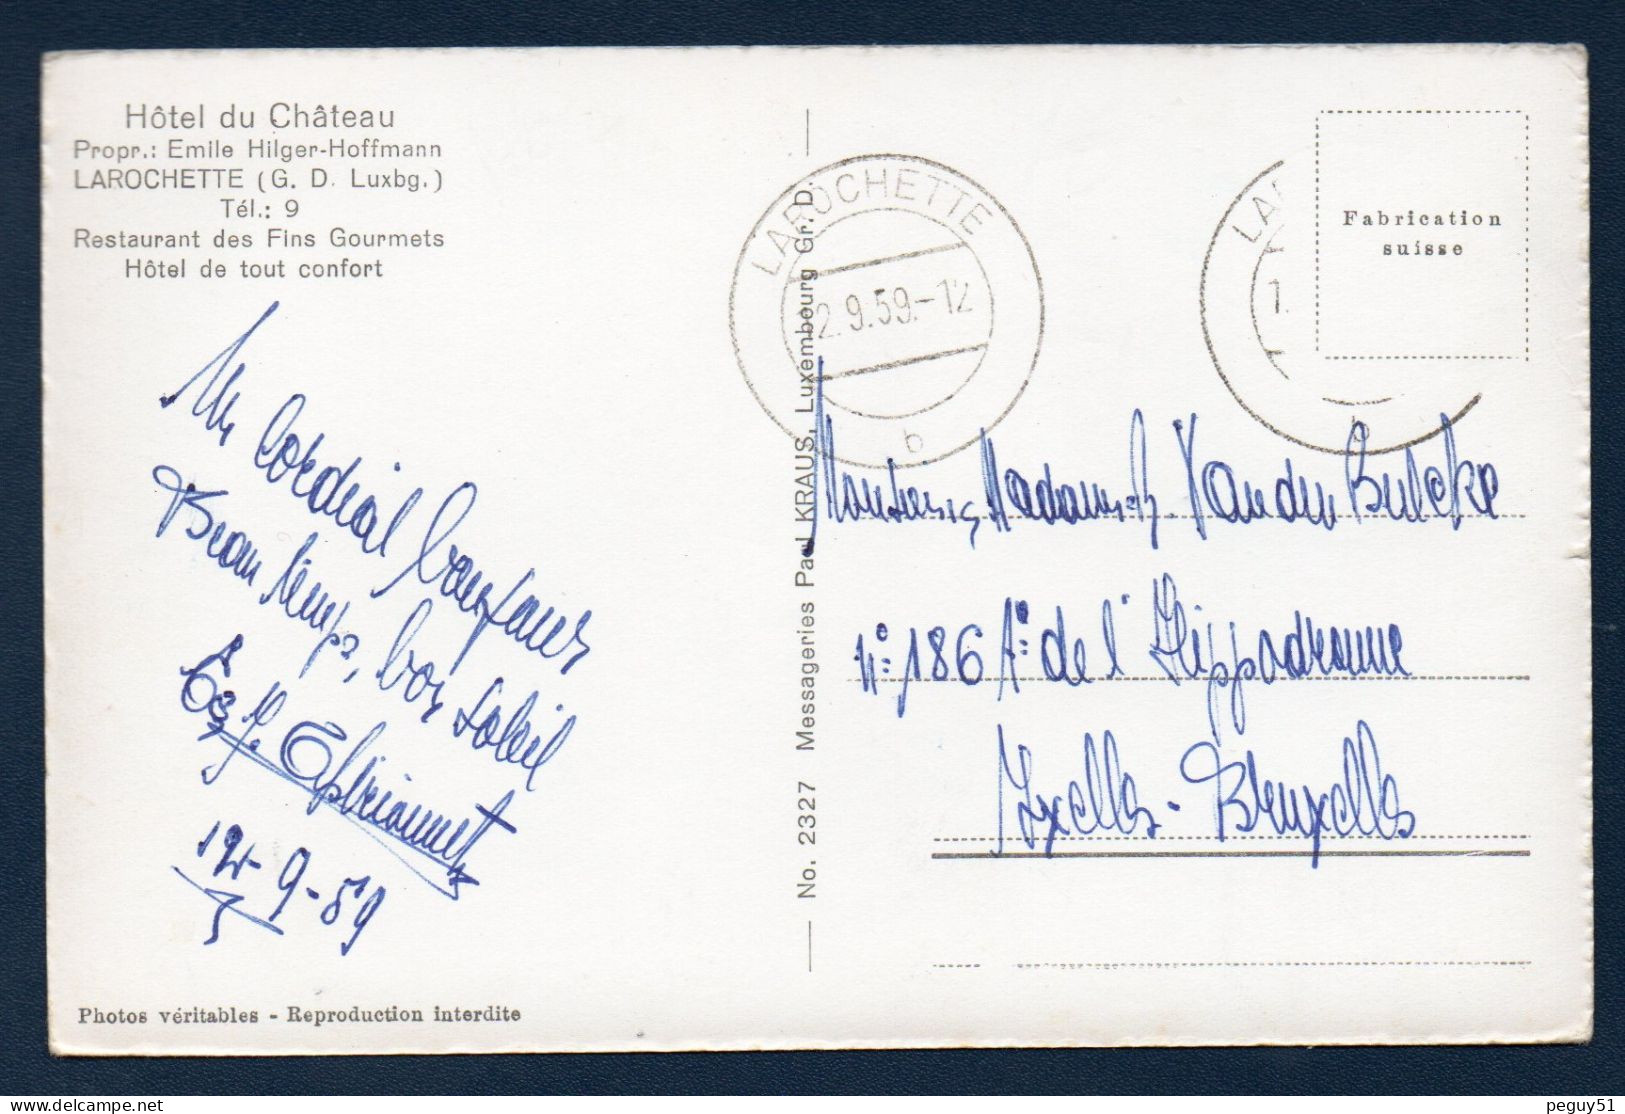 Hôtel du Château
Propr.: Emile Hilger-Hoffmann
LAROCHETTE (G. D. Luxbg.)
Tél.: 9
Restaurant des Fins Gourmets
Hôtel de tout confort
Un Cordial bonjour
Beau temps, bon soleil
12-9-59
Photos véritables - Reproduction interdite
No. 2327 Messageries Paul KRAUS, Luxembourg Gr. D.
LAROCHETTE
2.9.59.-12
b
LA
1
b
Fabrication
suisse
Monsieur, Madame Van den Bulcke
n° 186 A° de l'Hippodrome
Ixelles - Bruxelles
peguy51